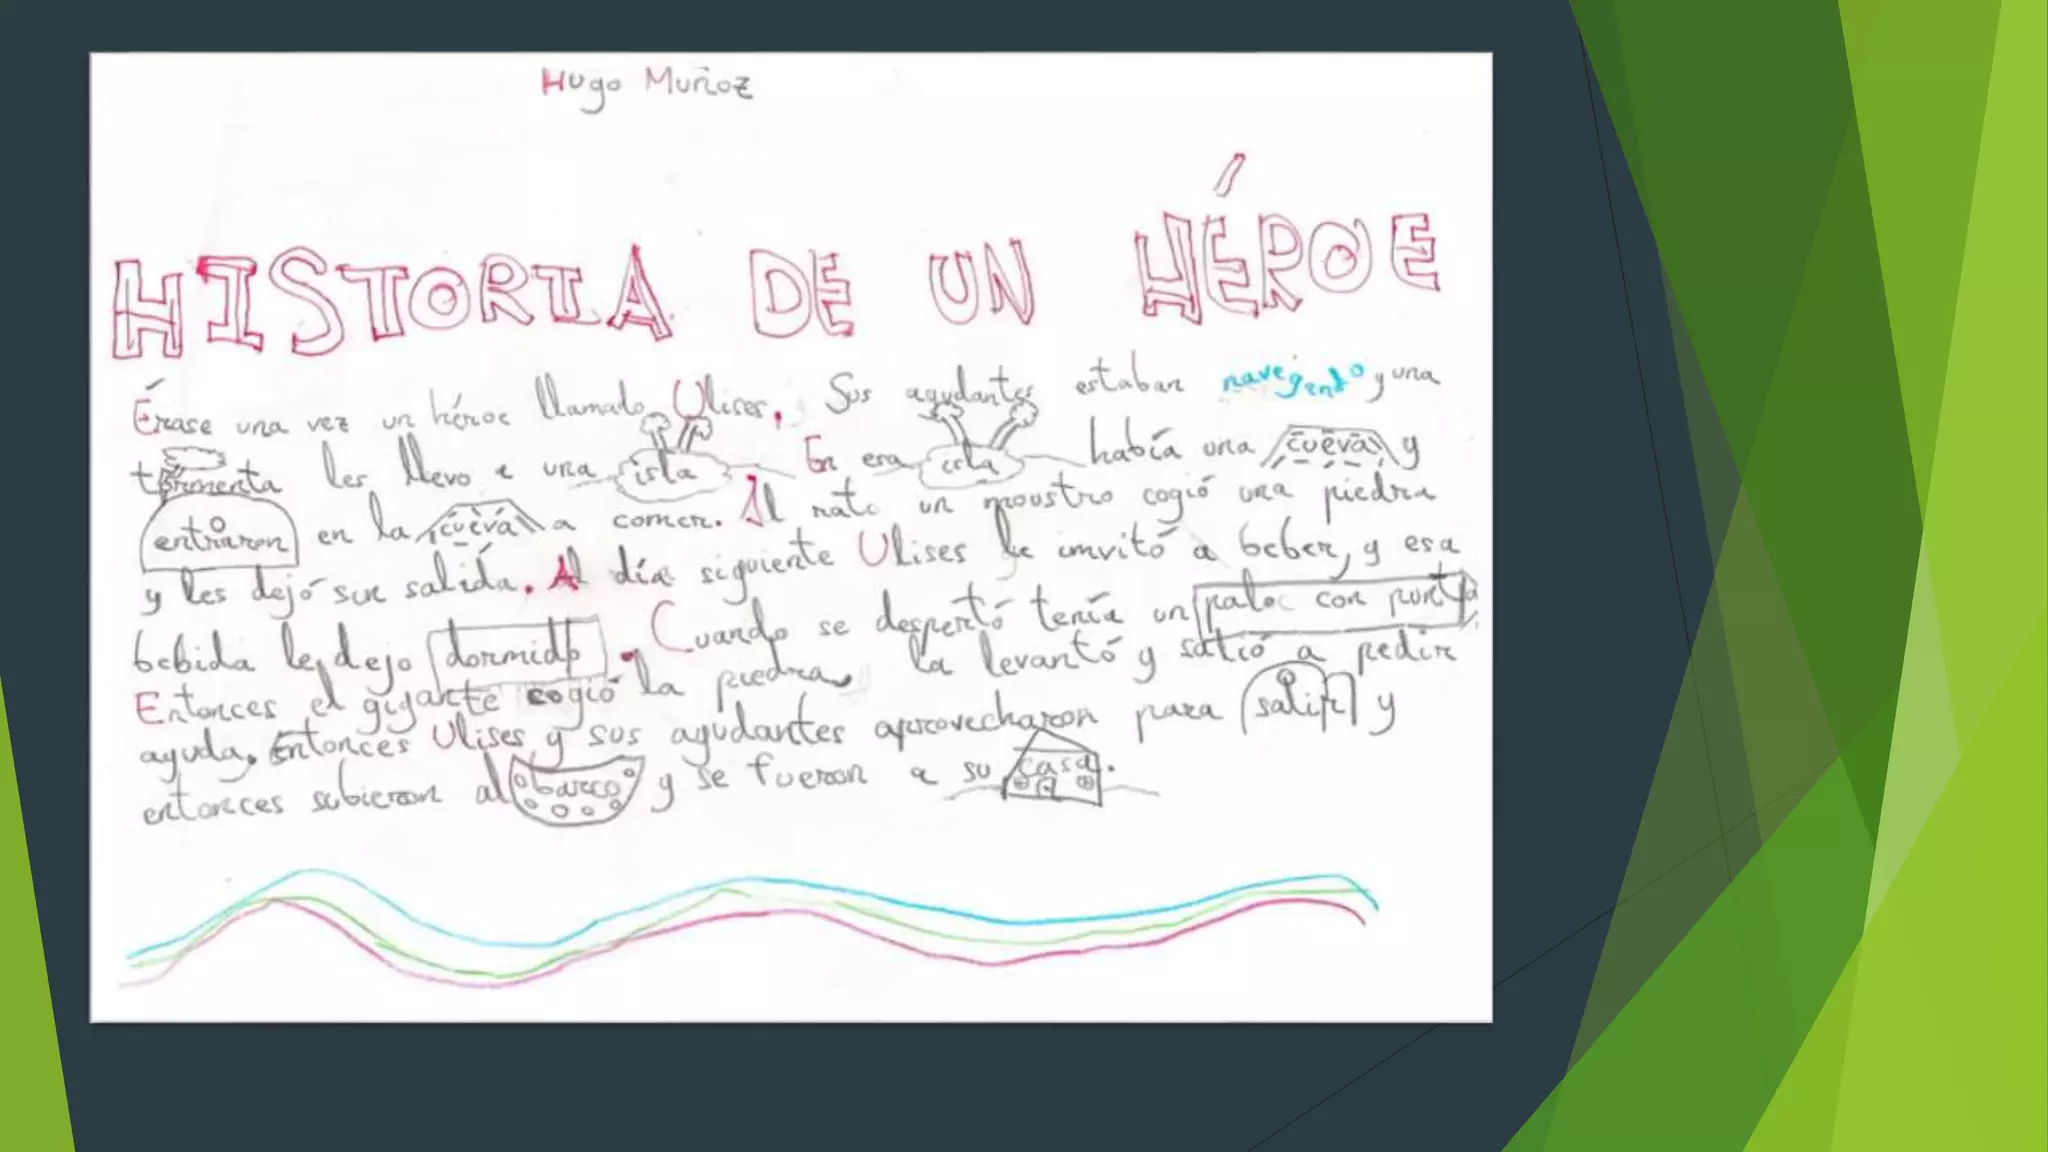 Hugo Muñoz
HISTORIA DE UN HÉROE
Érase una vez un héroe llamado Ulises. Sus ayudantes estaban navegando y una
tormenta les llevo a una isla. En esa isla había una cueva y
entraron en la cueva a comer. Al rato un moustro cogió una piedra
y les dejó sin salida. Al día siguiente Ulises le invitó a beber, y esa
bebida le dejo dormido. Cuando se despertó tenía un palo con punta
Entonces el gigante cogió la piedra, la levantó y salió a pedir
ayuda. Entonces Ulises y sus ayudantes aprovecharon para salir y
entonces subieron al barco y se fueron a su casa.